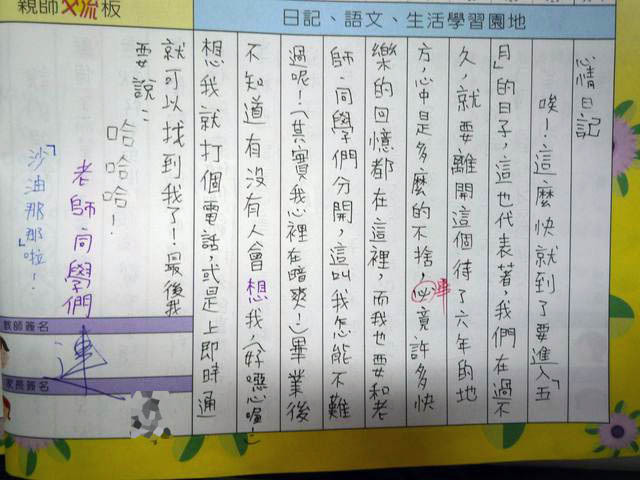 親師交流板
日記、語文、生活學習園地
心情日記
唉！這麼快就到了要進入「五
月」的日子，這也代表著，我們在過不
久，就要離開這個待了六年的地
方，心中是多麼的不捨，必竟許多快
畢
樂的回憶都在這裡，而我也要和老
師、同學們分開，這叫我怎能不難
過呢！（其實我心裡在暗爽！）畢業後
不知道有沒有人會想我，（好噁心喔！）
想我就打個電話，或是上即時通
就可以找到我了！最後我
要說：
哈哈哈！
老師同學們
「沙油那那啦！」
教師簽名
家長簽名